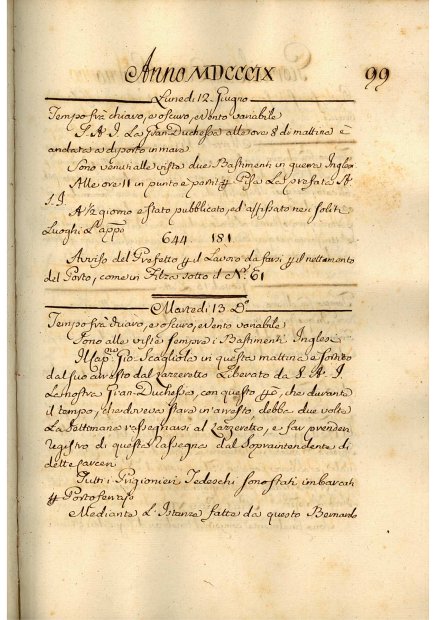 Anno MDCCCIX 99
Lunedi 12 Giugno
Tempo frà chiaro, e oscuro, e vento variabile
S. A. I. La Gran Duchessa alle ore 8 di mattina è
andata a diporto in mare
Sono venuti alla vista due Bastimenti in guerra Inglesi
Alle ore 11 in punto è partita Pisa La prefata A.
S. I.
A ½ giorno è stato pubblicato, ed affissato nei soliti
Luoghi L'app.
644 181
Avviso del Prefetto il Lavoro da farsi il nettamento
del Porto, come in Filza sotto il N. 61
Martedi 13 D.
Tempo frà chiaro, e oscuro, e vento variabile
Sono alla vista sempre i Bastimenti Inglesi
Gio. Scagliola in questa mattina è sortito
dal suo arresto dal Lazzeretto Liberato da S. A. I.
La nostra Gran-Duchessa, con questo che durante
il tempo, che doveva stare in arresto debba due volte
La Settimana rassegnarsi al Lazzeretto, e far prender
registro di questa Rassegna dal Sopraintendente di
dette
Tutti i Prigionieri Tedeschi sono stati imbarcati
Portoferraio
Mediante L'Istanza fatta da questo Bernardo